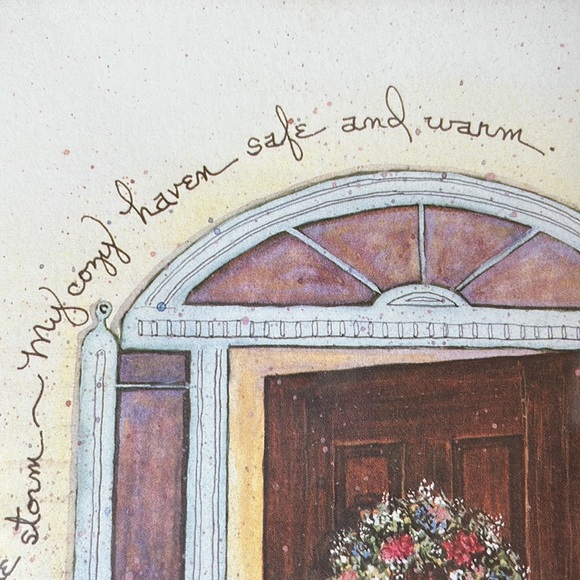 storm ~ My cozy haven safe and warm.